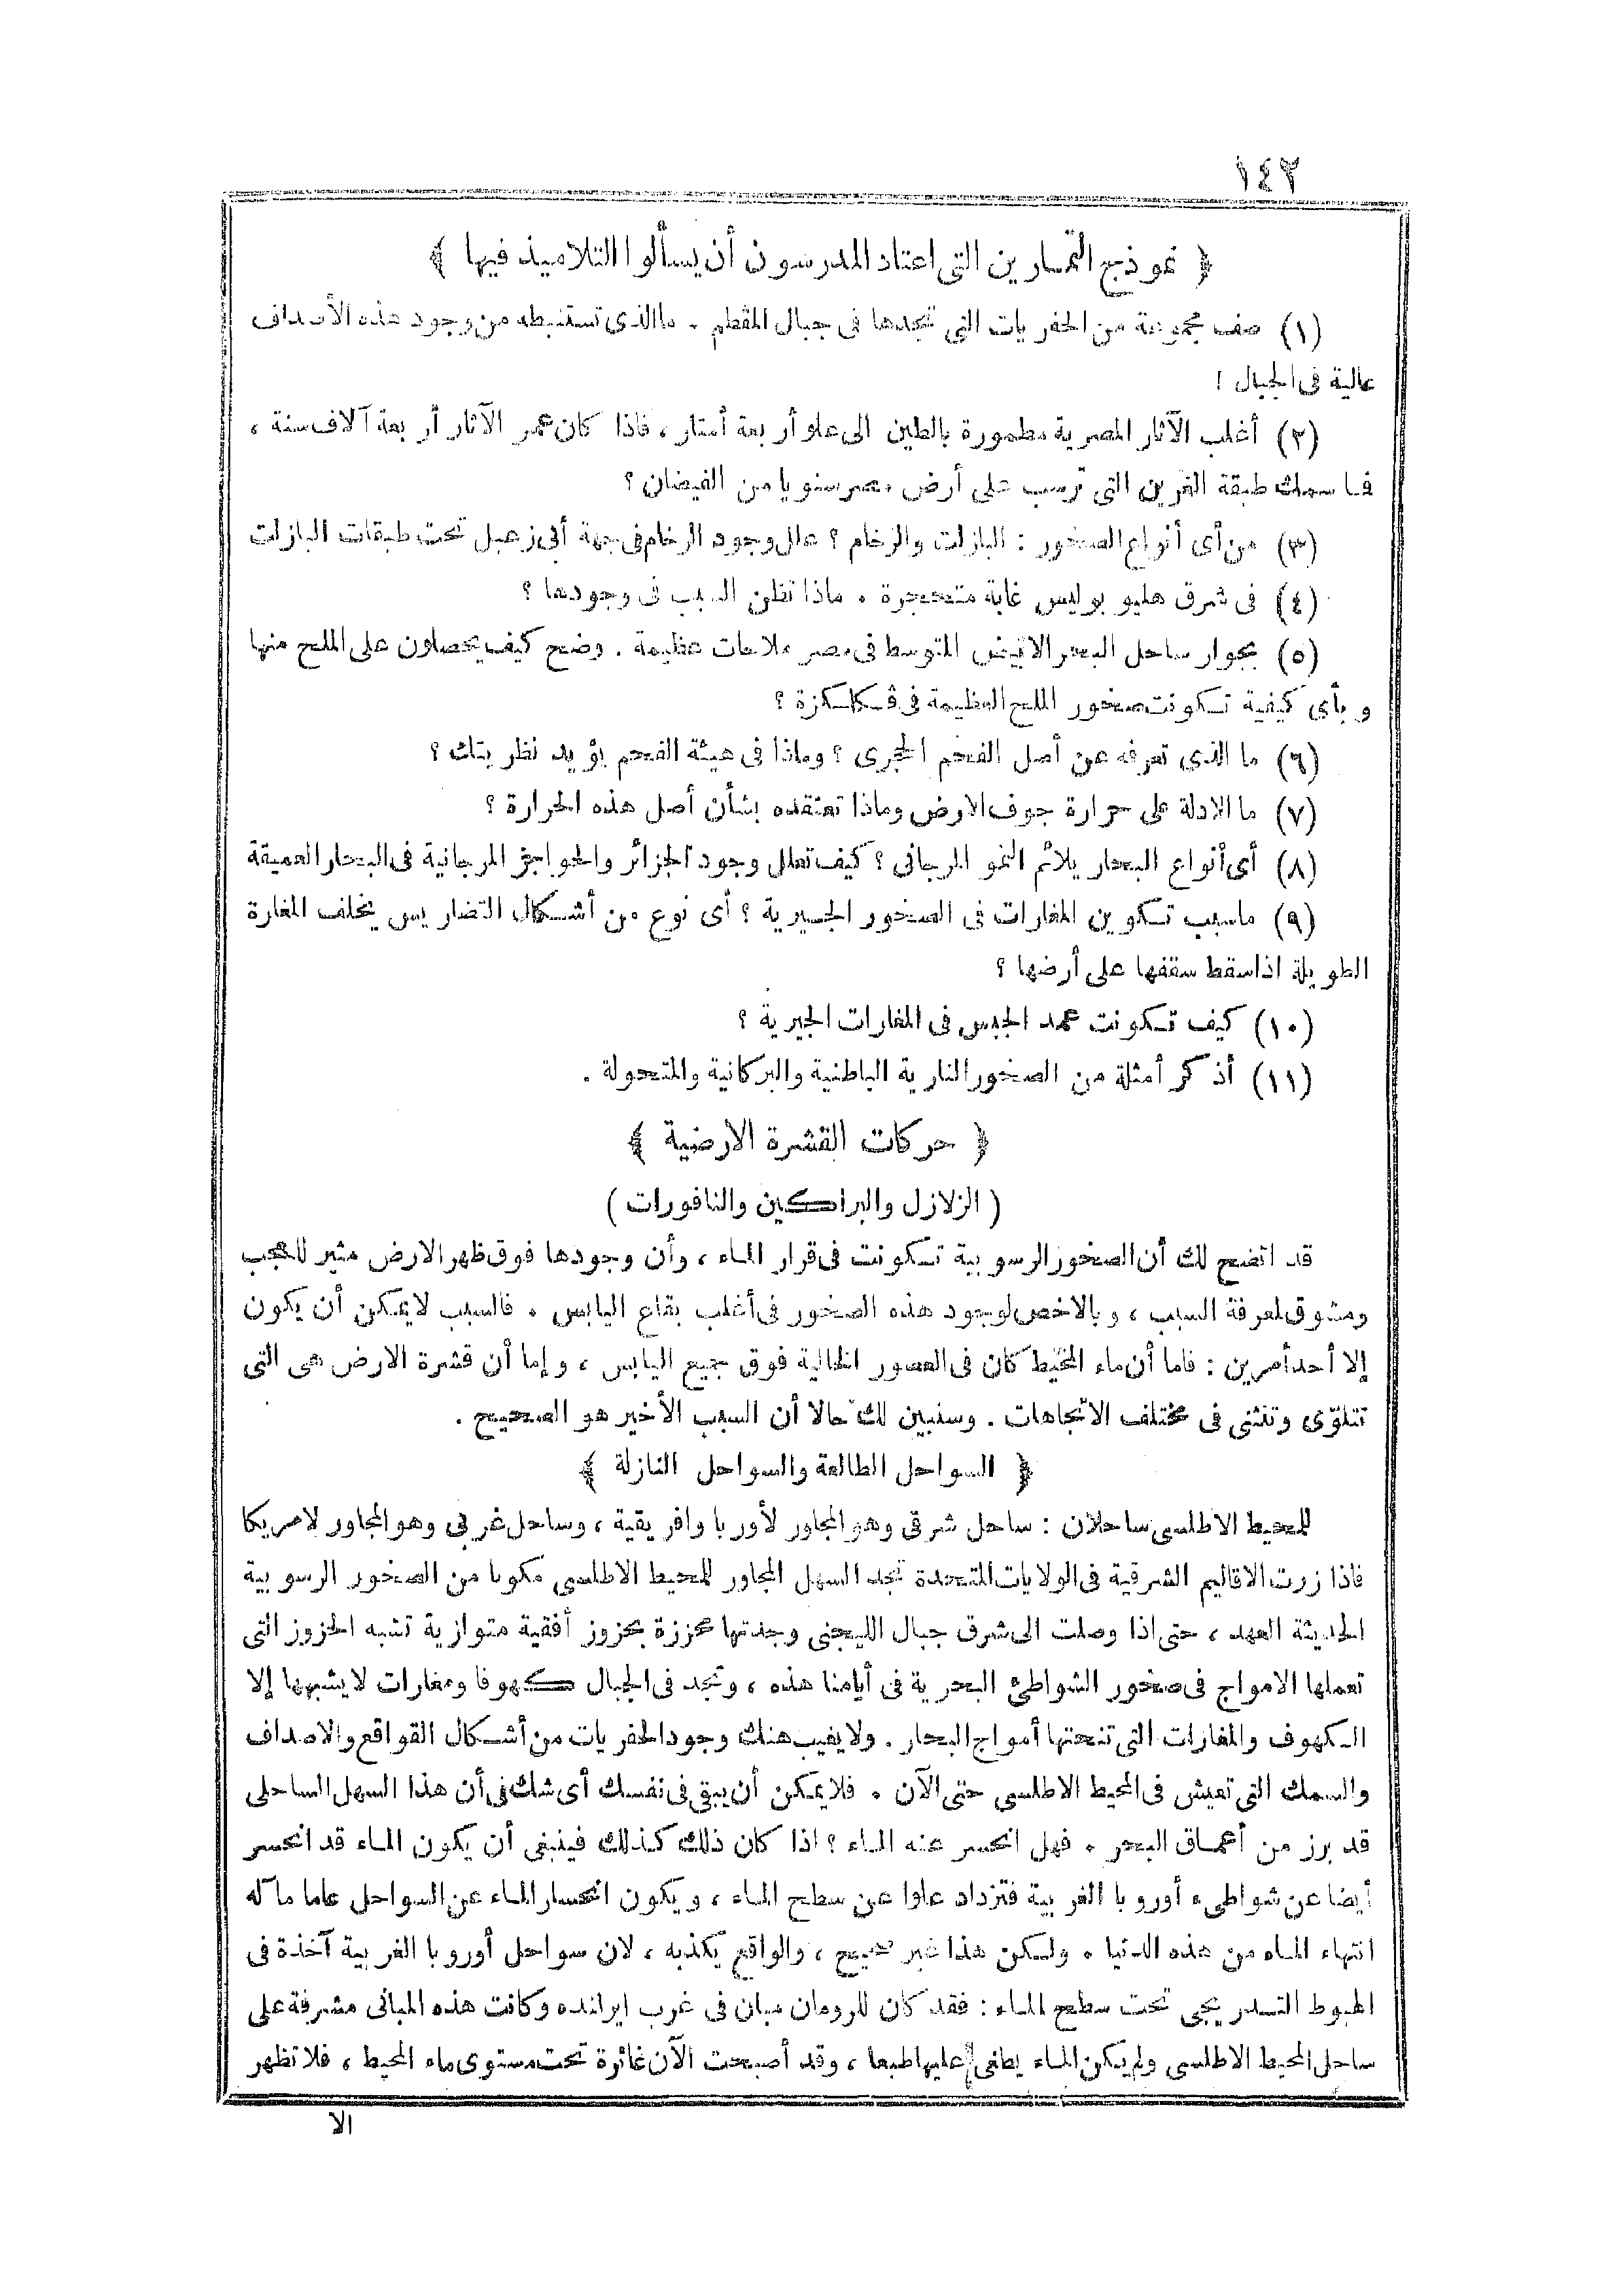 ١٤٢
﴿ نموذج التمارين التى اعتاد المدرسون أن يسألوا التلاميذ فيها ﴾
(١) صف مجموعة من الحفريات التى تجدها فى جبال المقطم . ما الذى تستنبطه من وجود هذه الأصداف
عالية فى الجبال !
(٢) أغلب الآثار المصرية مطمورة بالطين الى علو أربعة أمتار ، فاذا كان عمر الآثار أربعة آلاف سنة ،
فما سمك طبقة الغرين التى ترسب على أرض مصر سنويا من الفيضان ؟
(٣) من أى أنواع الصخور : البازلت والرخام ؟ علل وجود الرخام فى جهة أبى زعبل تحت طبقات البازلت
(٤) فى شرق هليو بوليس غابة متحجرة . ماذا تظن السبب فى وجودها ؟
(٥) بجوار ساحل البحر الابيض المتوسط فى مصر ملاحات عظيمة . وضح كيف يحصلون على الملح منها
و بأى كيفية تكونت صخور الملح العظيمة فى
(٦) ما الذى تعرفه عن أصل الفحم الحجرى ؟ وماذا فى هيئة الفحم يؤيد نظريتك ؟
(٧) ما الادلة على حرارة جوف الارض وماذا تعتقده بشأن أصل هذه الحرارة ؟
(٨) أى أنواع البحار يلائم النمو المرجانى ؟ كيف تعلل وجود الجزائر والحواجز المرجانية فى البحار العميقة
(٩) ماسبب تكوين المغارات فى الصخور الجيرية ؟ أى نوع من أشكال التضاريس يخلف المغارة
الطويلة اذا سقط سقفها على أرضها ؟
(١٠) كيف تكونت عمد الجبس فى المغارات الجيرية ؟
(١١) أذكر أمثلة من الصخور النارية الباطنية والبركانية والمتحولة .
﴿ حركات القشرة الارضية ﴾
( الزلازل والبراكين والنافورات )
قد اتضح لك أن الصخور الرسوبية تكونت فى قرار الماء ، وأن وجودها فوق ظهر الارض مثير للعجب
ومشوق لمعرفة السبب ، وبالاخص لوجود هذه الصخور فى أغلب بقاع اليابس . فالسبب لا يمكن أن يكون
إلا أحد أمرين : فاما أن ماء المحيط كان فى العصور الخالية فوق جميع اليابس ، وإما أن قشرة الارض هى التى
تتلوّى وتنثنى فى مختلف الاتجاهات . وسنبين لك حالا أن السبب الأخير هو الصحيح .
﴿ السواحل الطالعة والسواحل النازلة ﴾
للمحيط الاطلسى ساحلان : ساحل شرقى وهو المجاور لأوربا وافريقية ، وساحل غربى وهو المجاور لامريكا
فاذا زرت الاقاليم الشرقية فى الولايات المتحدة تجد السهل المجاور للمحيط الاطلسى مكونا من الصخور الرسوبية
الحديثة العهد ، حتى اذا وصلت الى شرق جبال الليجنى وجدتها محززة بحزوز أفقية متوازية تشبه الحزوز التى
تعملها الامواج فى صخور الشواطئ البحرية فى أيامنا هذه ، وتجد فى الجبال كهوفا ومغارات لا يشبهها إلا
الكهوف والمغارات التى تنحتها أمواج البحار . ولا يغيب هنك وجود الحفريات من أشكال القواقع والاصداف
والسمك التى تعيش فى المحيط الاطلسى حتى الآن . فلا يمكن أن يبقى فى نفسك أى شك فى أن هذا السهل الساحلى
قد برز من أعماق البحر . فهل انحسر عنه الماء ؟ اذا كان ذلك كذلك فينبغى أن يكون الماء قد انحسر
أيضا عن شواطىء أوروبا الغربية فتزداد علوا عن سطح الماء ، ويكون انحسار الماء عن السواحل عاما مآله
انتهاء الماء من هذه الدنيا . ولكن هذا غير صحيح ، والواقع يكذبه ، لان سواحل أوروبا الغربية آخذة فى
الهبوط التدريجى تحت سطح الماء : فقد كان للرومان مبان فى غرب ايرلنده وكانت هذه المبانى مشرفة على
ساحل المحيط الاطلسى ولم يكن الماء يطغى عليها طبعا ، وقد أصبحت الآن غائرة تحت مستوى ماء المحيط ، فلا تظهر
الا